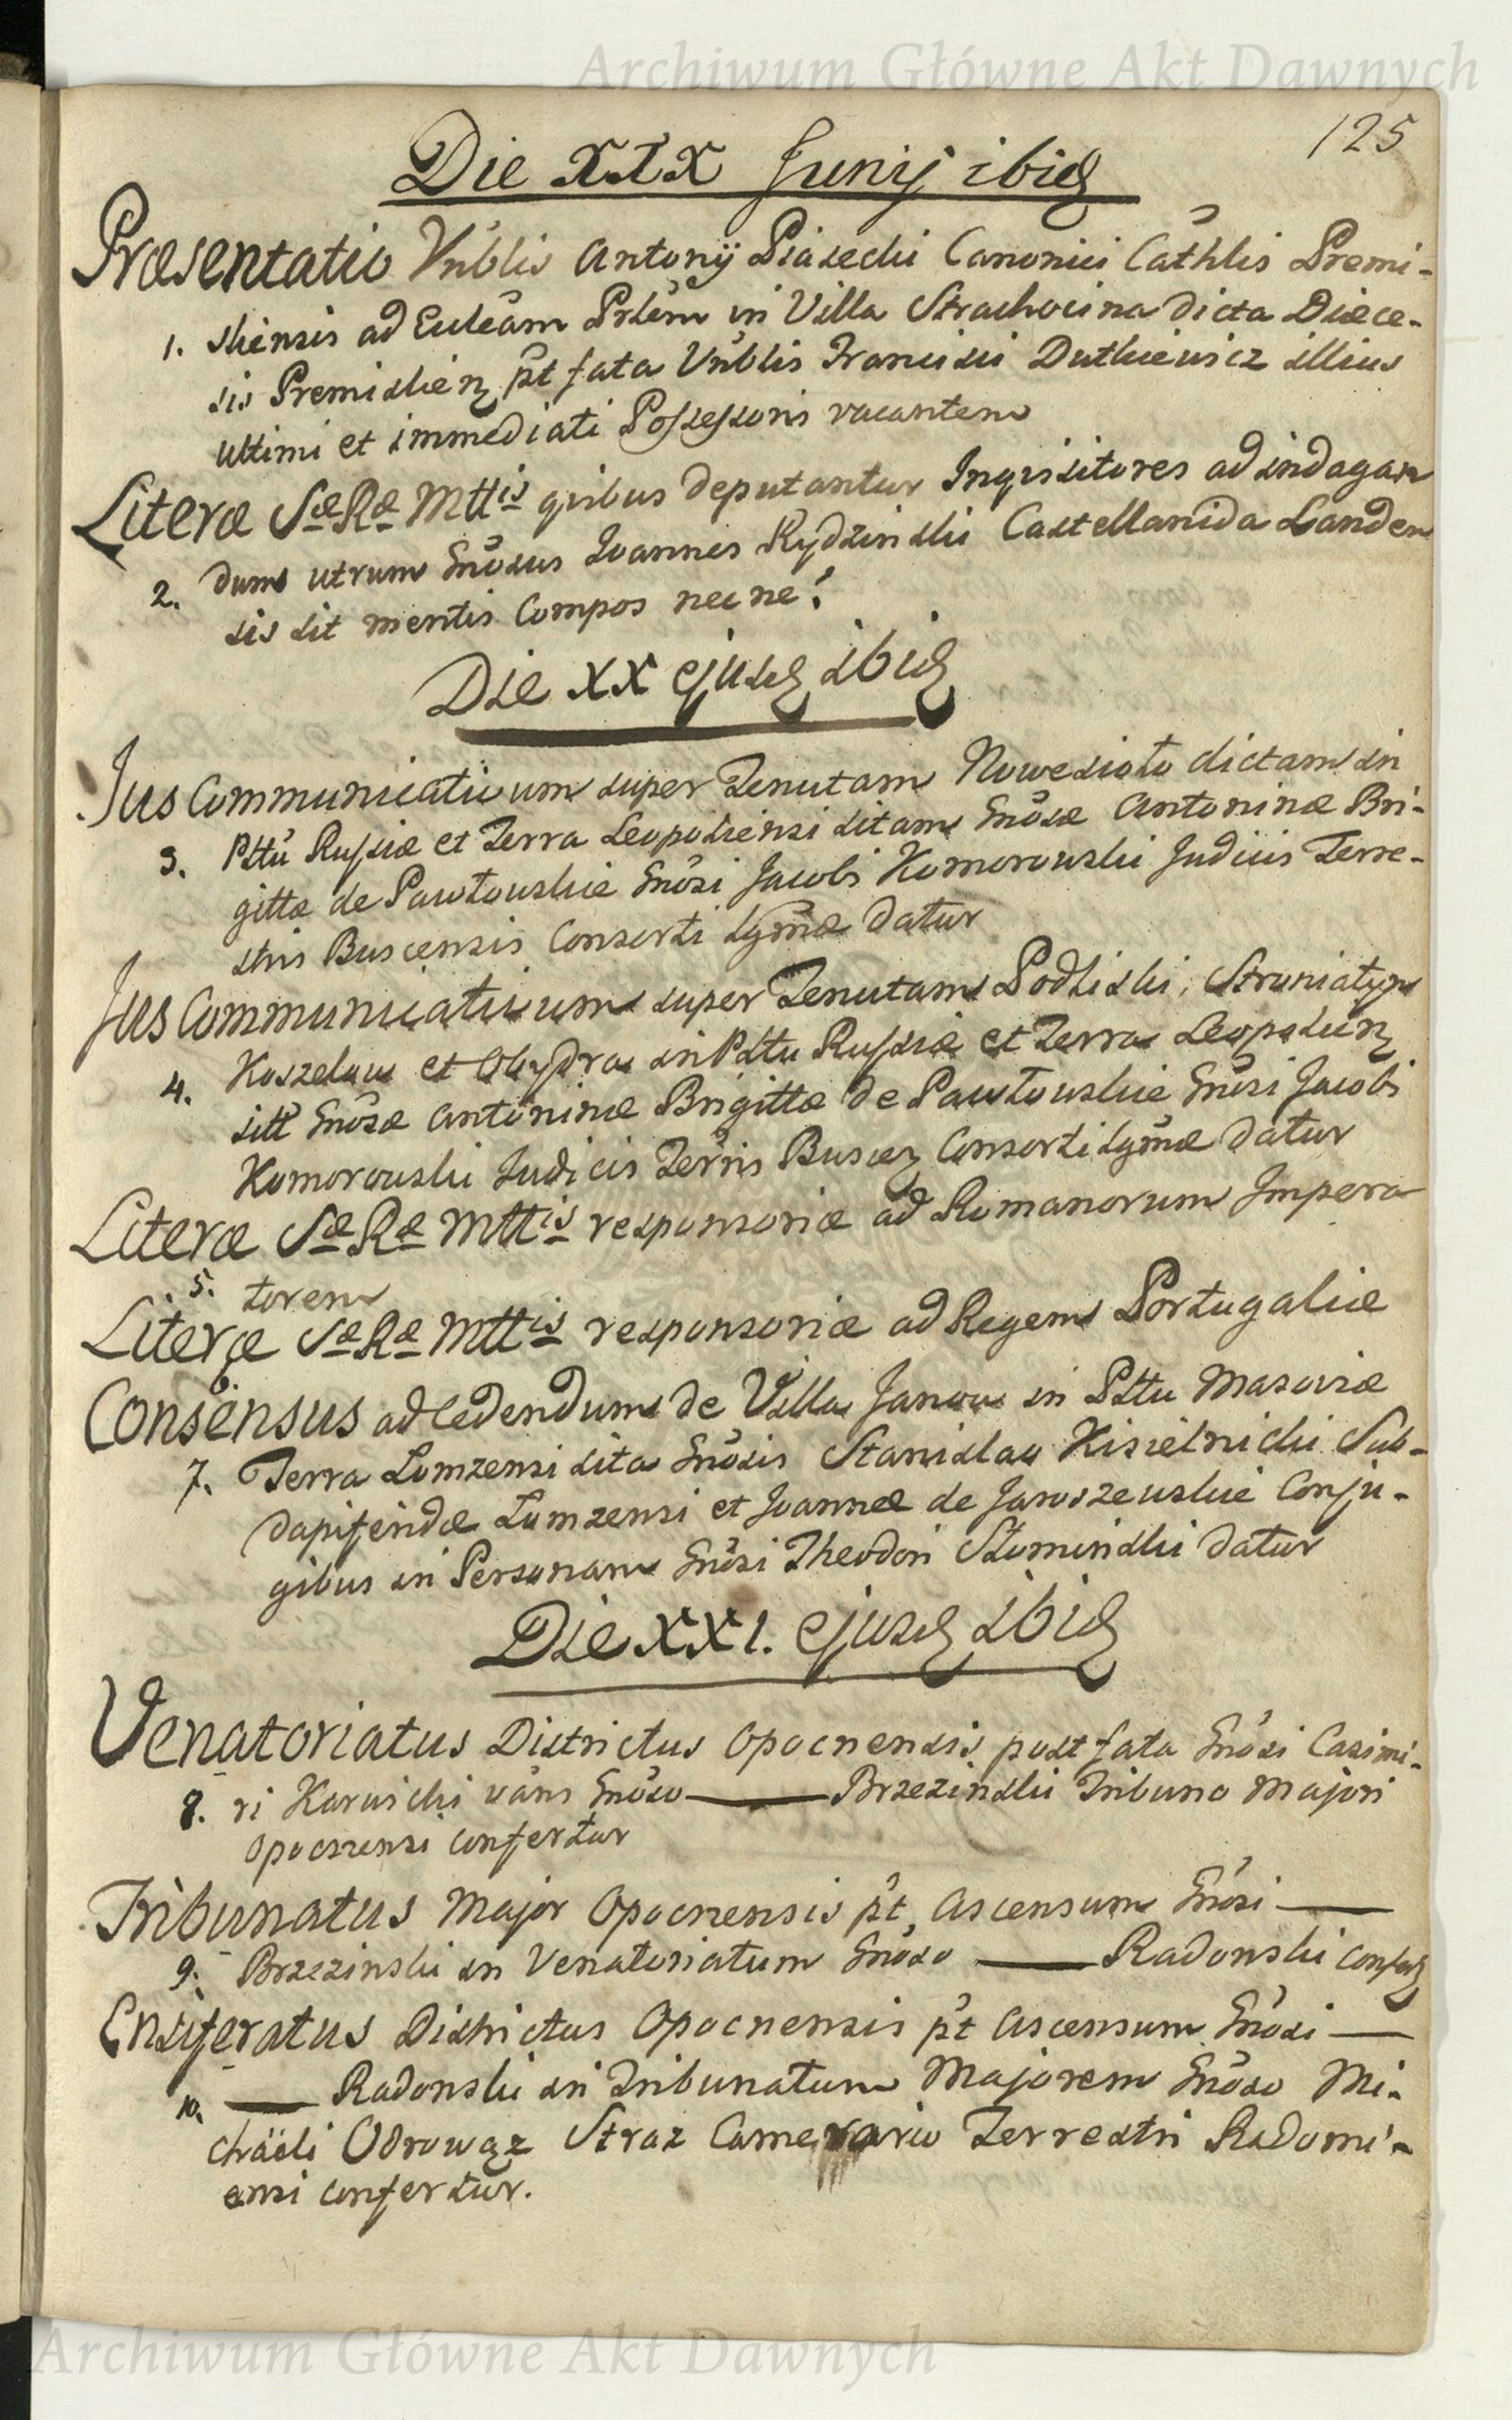 Archiwum Główne Akt Dawnych
125
Die XIX Junij ibid
Præsentatio Vnblis Antonij Piasecki Canonici Cathlis Premi-
1. sliensis ad Eccleām Prlēm in Villa Strachocina dicta Diæce-
sis Premislien pt fata Vnblis Francisci Dutkiewicz illius
ultimi et immediati Possessoris vacantem
Literæ Sæ Ræ Mttis quibus deputantur Inqisitores ad indagan
2. dum utrum Gnosus Joannes Rydzinski Castellanida Landen
sis sit mentis Compos necne?
Die XX ejusd ibid
Jus Communicativum super Tenutam Nowesioło dictam in
3. Pltu Russiæ et Terra Leopoliensi sitam Gnosæ Antoninæ Bri-
gittæ de Pawłowskie Gnosi Jacobi Komorowski Judicis Terre-
stris Buscensis Consorti Lgmæ datur
Jus Communicativum super Tenutam Podliski, Struniatyn
4. Koszelow et Obydra in Pltu Russiæ et Terra Leopolien
sitt Gnosæ Antoninæ Brigittæ de Pawłowskie Gnosi Jacobi
Komorowski Judicis Terris Buscen Consorti Lgmæ datur
Literæ Sæ Ræ Mttis responsoriæ ad Romanorum Impera
5. torem
Literæ Sæ Ræ Mttis responsoriæ ad Regem Portugaliæ
6.
Consensus ad cedendum de Villa Janow in Pltu Masoviæ
7. Terra Lomzensi sita Gnosis Stanislao Kisielnicki Sub-
dapiferidæ Lomzensi et Joannæ de Jaroszewskie Conju-
gibus in Personam Gnosi Theodori Słominski datur
Die XXI. ejusd ibid
Venatoriatus Districtus Opocnensis post fata Gnosi Casimi-
8. ri Karwicki vans Gnoso — Brzezinski Tribuno Majori
Opocznensi confertur
Tribunatus Major Opocnensis pt Ascensum Gnosi —
9. Brzezinski in Venatoriatum Gnoso — Radonski Confer
Ensiferatus Districtus Opocnensis pt Ascensum Gnosi —
10. — Radonski in Tribunatum Majorem Gnoso Mi-
chaeli Odrowąz Straz Camerario Terrestri Radomi-
ensi confertur.
Archiwum Główne Akt Dawnych